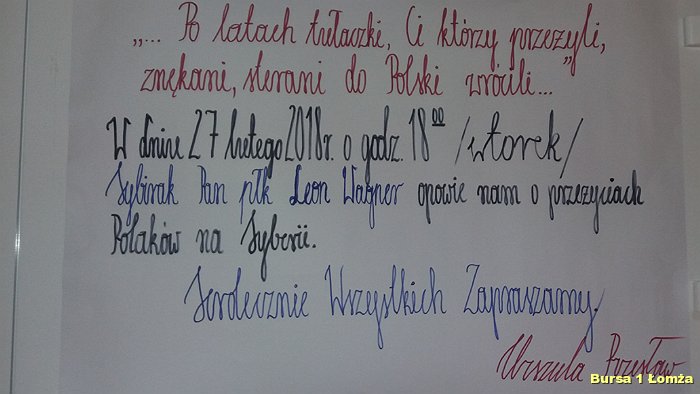 „... Po latach tułaczki, Ci którzy przeżyli,
znękani, sterani do Polski wrócili..."
W dniu 27 lutego 2018r. o godz. 18⁰⁰ /wtorek/
Sybirak Pan płk Leon Wagner opowie nam o przeżyciach
Polaków na Syberii.
Serdecznie Wszystkich Zapraszamy.
Urszula
Bursa 1 Łomża